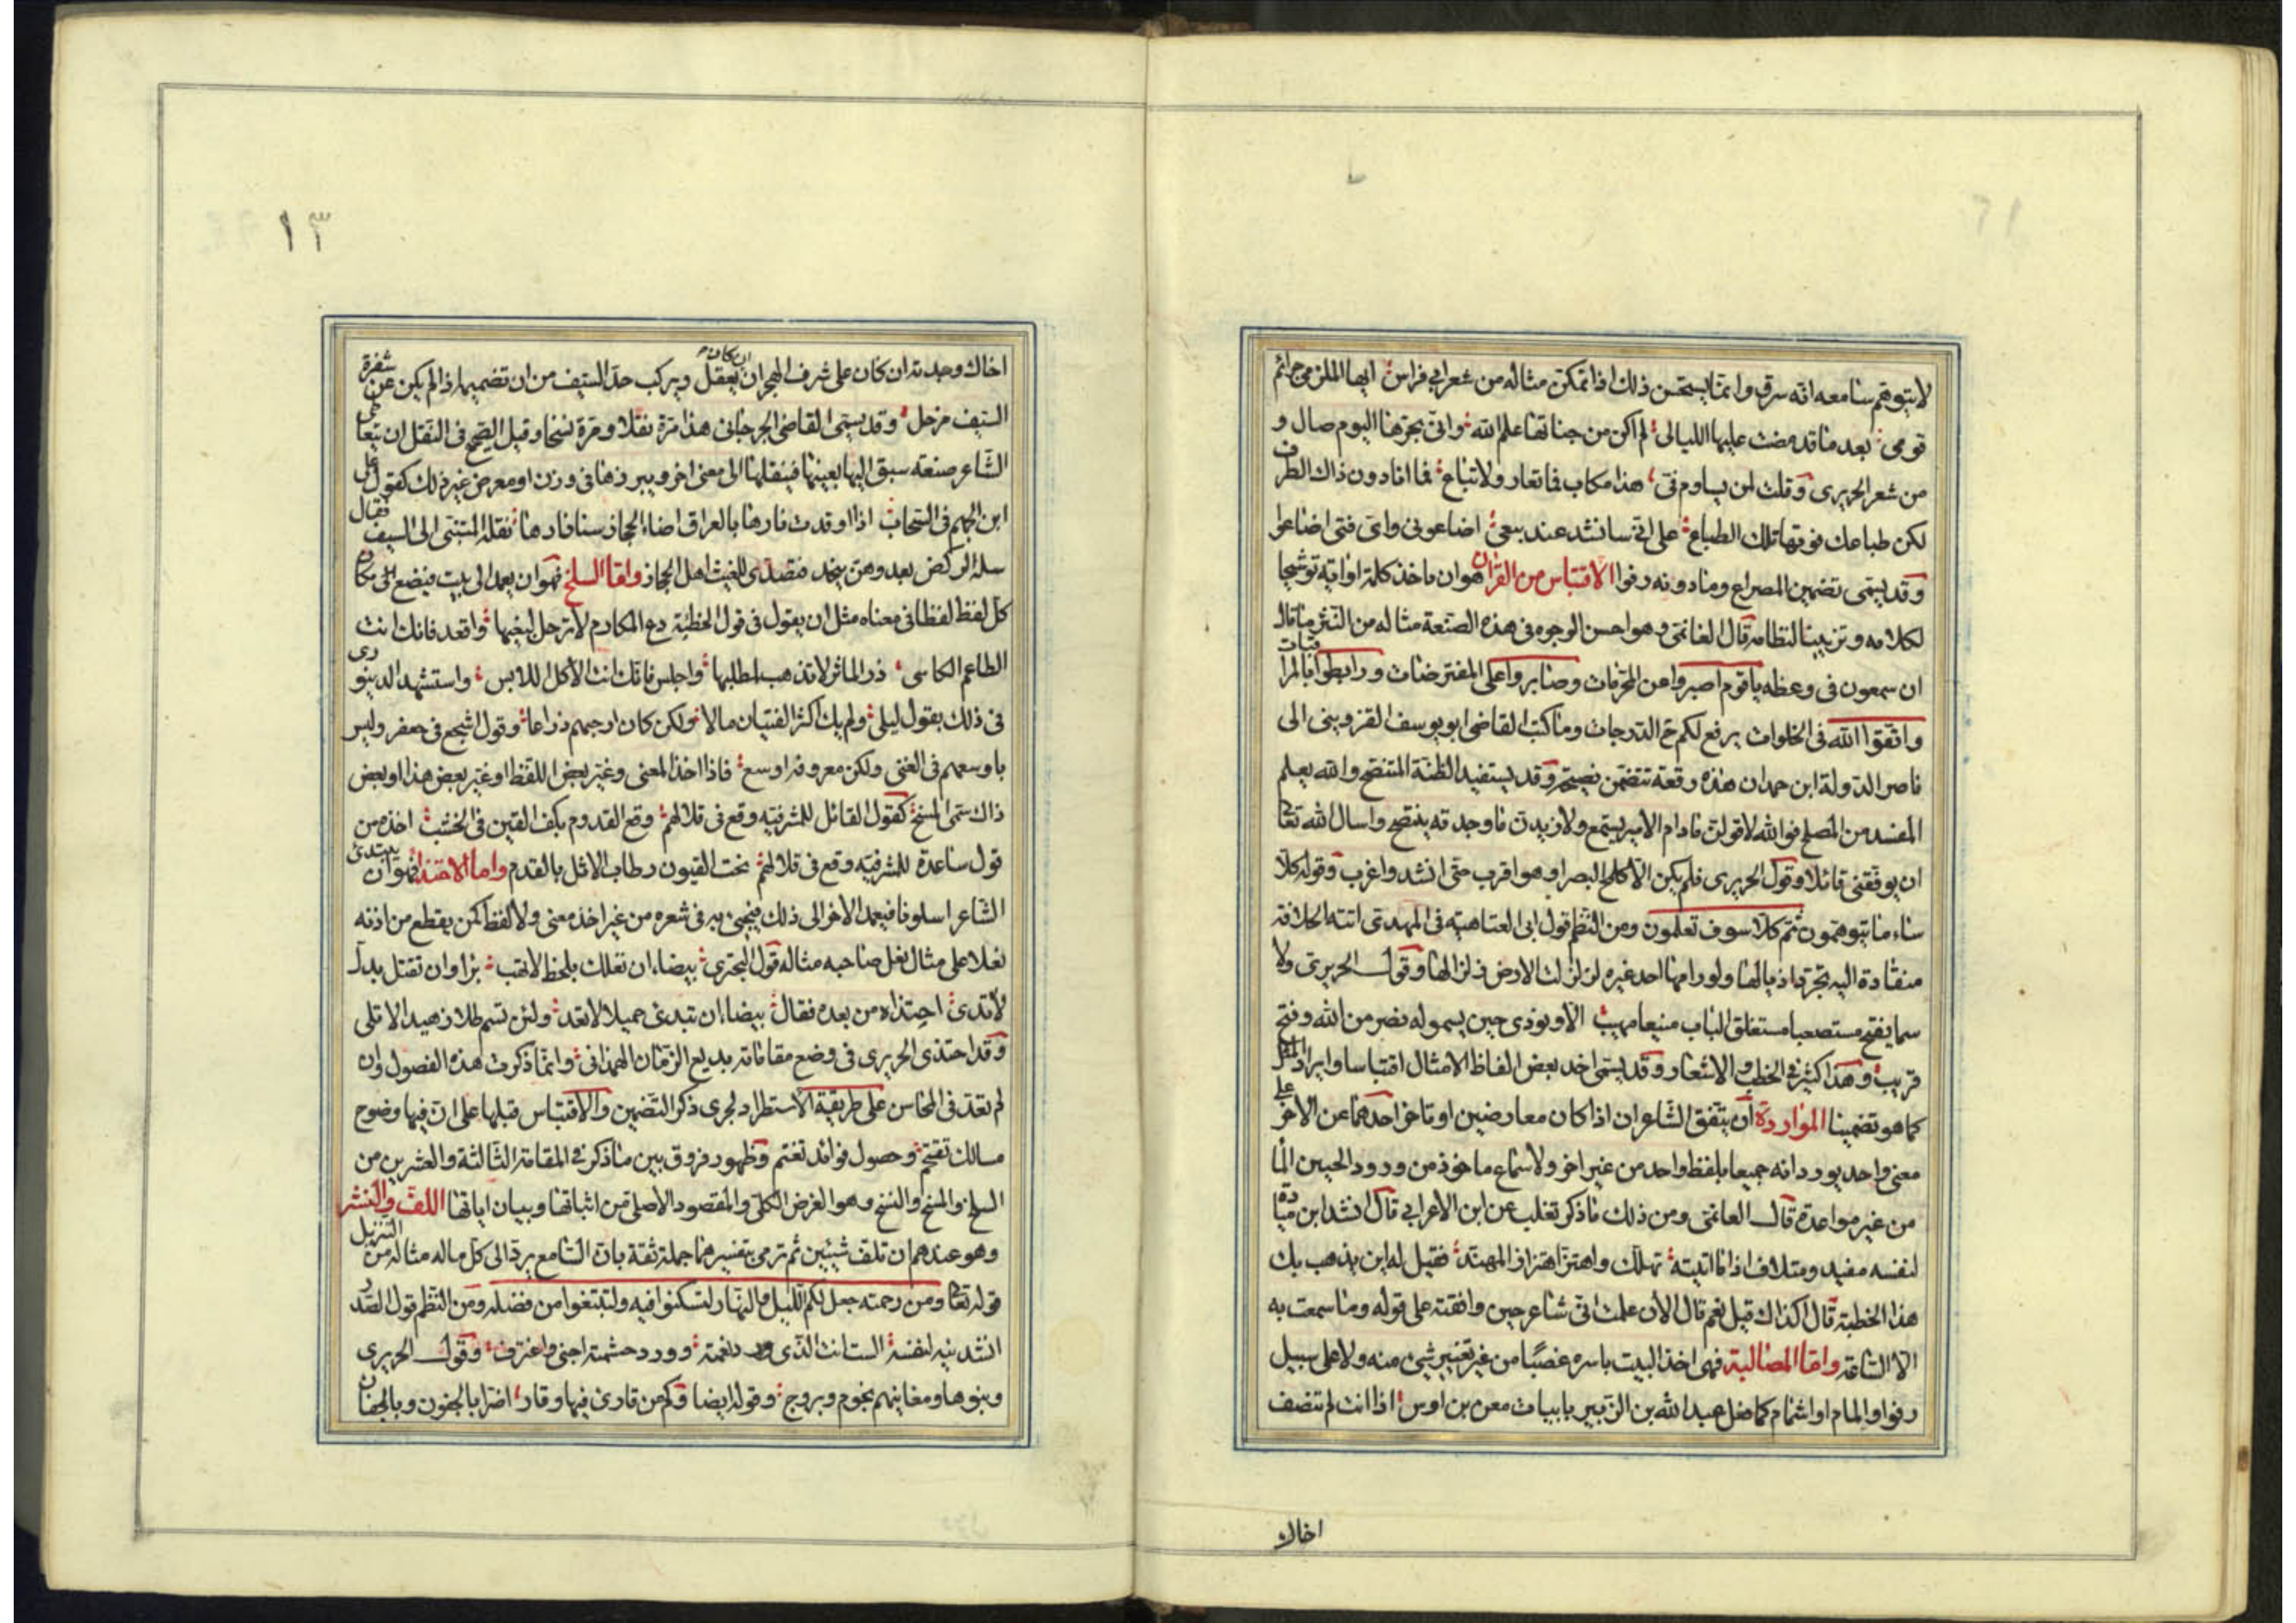 لا يتوهم سامعه انه سرق وانما يستحسن ذلك اذا تمكن مثاله من شعر ابي فراس ايها الملزمي جرائم
قومى بعد ما قد مضت عليها الليالى لم اكن من جناتها علم الله وانى بحرها اليوم صال و
من شعر الحريرى وقلت لمن يساوم فى هذا سكاب فما تعار ولا تباع فما انا دون ذاك الطرف
لكن طباعك فوقها تلك الطباع على انى سانشد عند بيعى اضاعونى واى فتى اضاعوا
وقد يسمى تضمين المصراع وما دونه رفوا الاقتباس من القرآن هو ان ياخذ كلمة او اية توشيحا
لكلامه وتزيينا لنظامه قال الغانمى وهو احسن الوجوه فى هذه الصنعة مثاله من النثر ما قال
ابن سمعون فى وعظه يا قوم اصبروا عن المحرمات وصابروا على المفترضات ورابطوا بالمراقبات
واتقوا الله فى الخلوات يرفع لكم الدرجات وما كتب القاضى ابو يوسف القزوينى الى
ناصر الدولة ابن حمدان هذه رقعة تتضمن نصيحة وقد يستفيد الظنة المتنصح والله يعلم
المفسد من المصلح فوالله لاقولن مادام الامير يستمع ولازيدن ما وجدته ينتصح واسال الله تعا
ان يوفقنى قائلا وقول الحريرى فلم يكن الا كلمح البصر او هو اقرب حتى انشد واغرب وقوله كلا
ساء ما يتوهمون ثم كلا سوف تعلمون ومن النظم قول ابى العتاهية فى المهدى اتته الخلافة
منقادة اليه تجرر اذيالها ولو رامها احد غيره لزلزلت الارض زلزالها وقول الحريرى ولا
سما يفتح مستصعبا مستغلق الباب منيعا مهيب الا ونودى حين يسمو له نصر من الله وفتح
قريب وهذا كثير فى الخطب والاشعار وقد يسمى اخذ بعض الفاظ الامثال اقتباسا وايراد المثل
كما هو تضمينا المواردة ان يتفق الشاعران اذا كان معارضين او تاخر احدهما عن الاخر على
معنى واحد يوردانه جميعا بلفظ واحد من غير اخذ ولا سماع ماخوذ من ورود الحيين الما
من غير مواعدة قال الغانمى ومن ذلك ما ذكر ثعلب عن ابن الاعرابي قال انشد ابن ميادة
لنفسه مفيد ومتلاف اذا ما اتيته تهلل واهتز اهتزاز المهند فقيل له اين يذهب بك
هذا الحطيئة قال اكذاك قيل نعم قال الان علمت انى شاعر حين وافقته على قوله وما سمعت به
الا الساعة واما المصالتة فهى اخذ البيت باسره غصبا من غير تغيير شىء منه ولا على سبيل
رفو او المام او اشمام كما فعل عبد الله بن الزبير بابيات معن بن اوس اذا انت لم تنصف
اخاك
١٣
اخاك وجدته ان كان على شرف الهجران ان كان يعقل ويركب حد السيف من ان تضيمه اذا لم يكن عن شفرة
السيف مزحل وقد يسمى القاضى الجرجانى هذا مرة نقلا ومرة نسخا وقيل الصحيح فى النقل ان يتعاطى
الشاعر صنعة سبق اليها بعينها فينقلها الى معنى اخر ويبرزها فى وزن او معرض غير ذلك كقول على
ابن الجهم فى السحاب اذا اوقدت نارها بالعراق اضاء الحجاز سنا نارها نقله المتنبى الى السيف فقال
سله الركض بعد وهن بنجد فتصدى للغيث اهل الحجاز واما السلخ فهو ان يعمد الى بيت فيضع مكان
كل لفظ لفظا فى معناه مثل ان يقول فى قول الحطيئة دع المكارم لا ترحل لبغيتها واقعد فانك انت
الطاعم الكاسى ذر الماثر لا تذهب لمطلبها واجلس فانك انت الاكل اللابس واستشهد الدينورى
فى ذلك بقول ليلى ولم يك اكثر الفتيان مالا ولكن كان ارحبهم ذراعا وقول اشجع فى جعفر وليس
باوسعهم فى الغنى ولكن معروفه اوسع فاذا اخذ المعنى وغير بعض اللفظ او غير بعض هذا او بعض
ذاك سمى المسخ كقول القائل للمشرفيه وقع فى قلالهم وقع القدوم بكف القين فى الخشب اخذه من
قول ساعدة للمشرفيه وقع فى قلالهم نحت القيون رطاب الاثل بالقدم واما الاحتذاء فهو ان يبتدئ
الشاعر اسلوبا فيعمد الاخر الى ذلك فيجيء به فى شعره من غير اخذ معنى ولا لفظ كمن يقطع من اذنه
نعلا على مثال نعل صاحبه مثاله قول البحترى بيضاء ان تعلك بلحظ لا تهب برا وان تقتل بدل
لا تدى احتذاه من بعده فقال بيضاء ان تبدئ جميلا لا تعد ولئن تسم طلا زهيدا لا تلى
وقد احتذى الحريرى فى وضع مقاماته بديع الزمان الهمذانى وانما ذكرت هذه الفصول وان
لم تعد فى المحاسن على طريقة الاستطراد لجرى ذكر التضمين والاقتباس قبلها على ان فيها وضوح
مسالك تفتح وحصول فوائد تغتنم وظهور فروق بين ما ذكر فى المقامة الثالثة والعشرين من
السلخ والمسخ والنسخ وهو الغرض الكلى والمقصود الاصلى من اثباتها وبيان اياتها اللف والنشر
وهو عندهم ان تلف شيئين ثم ترمى بتفسيرهما جملة ثقة بان السامع يرد الى كل ماله مثاله من التنزيل
قوله تعا ومن رحمته جعل لكم الليل والنهار لتسكنوا فيه ولتبتغوا من فضله ومن النظم قول الصدر
انشدنيه لنفسه الست انت الذى ورد نعمته وورد حشمته اجنى واغترف وقول الحريرى
وبنوها ومغانيهم نجوم وبروج وقوله ايضا وكم من قارئ فيها وقار اضرا بالجفون وبالجفان